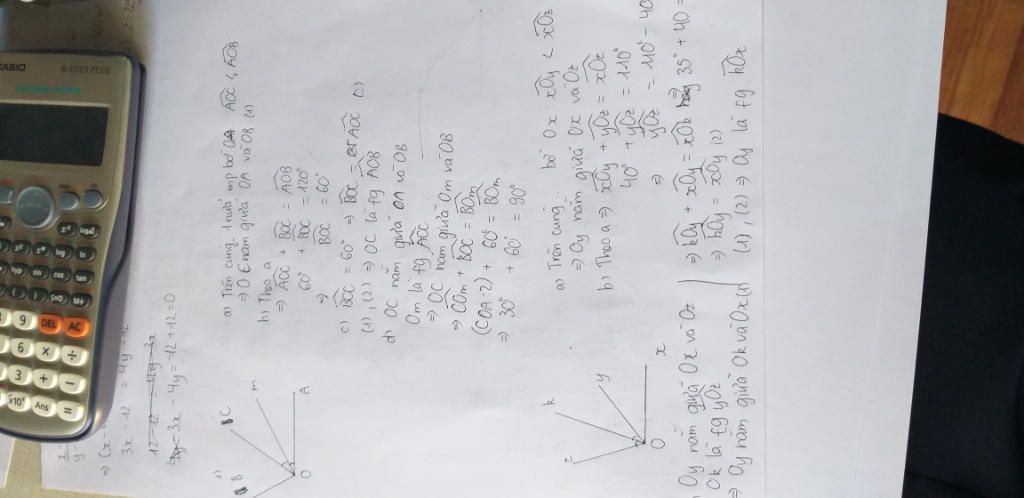 CASIO
fx-570ES PLUS
⇒ (x -
3x - 12 = 4y - 12
12 - 12 = 4y - 3x
3x - 4y = -12 + 12 = 0
a) Trên cùng 1 nửa mp bờ OA AOC < AOB
⇒ OC nằm giữa OA và OB (1)
b) Theo a
⇒ AOC + BOC = AOB
60° + BOC = 120°
⇒ BOC = 60°
c) BOC = 60° ⇒ BOC = AOC (2)
(1), (2) ⇒ OC là fg AOB
d) OC nằm giữa OA và OB
Om là fg AOC
⇒ OC nằm giữa Om và OB
⇒ COm + BOC = BOm
(COA : 2) + 60° = BOm
⇒ 30° + 60° = 90°
B
C
m
A
O
a) Trên cùng... bờ Ox: xOy < xOz
⇒ Oy nằm giữa Ox và Oz
b) Theo a ⇒ xOy + yOz = xOz
40° + yOz = 110°
⇒ yOz = 110° - 40
z
k
y
x
O
Oy nằm giữa Ox và Oz
Ok là fg yOz
⇒ Oy nằm giữa Ok và Ox (1)
⇒ kOy + xOy = xOk ⇒ 35° + 40 =
⇒ kOy = xOy (2)
(1), (2) ⇒ Oy là fg kOx